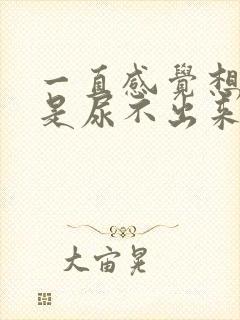 一直感覺想
是尿不出来
大宙晃